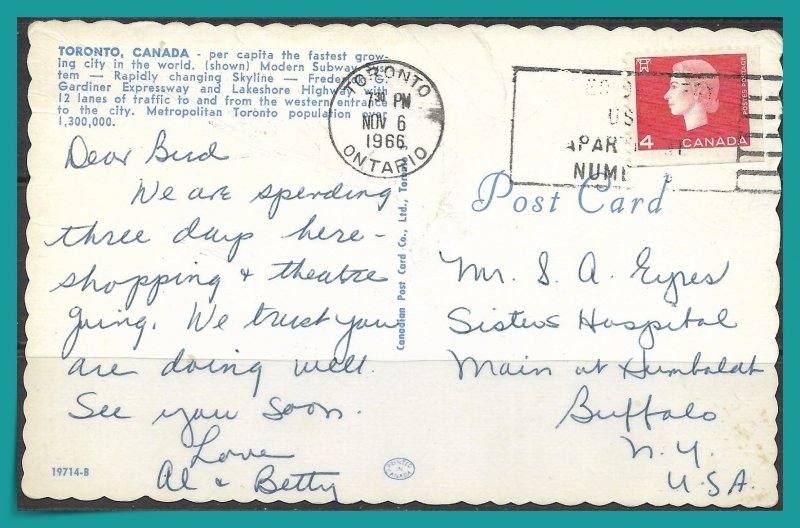 TORONTO, CANADA - per capita the fastest grow-
ing city in the world. (shown) Modern Subway Sys-
tem — Rapidly changing Skyline — Frederick G.
Gardiner Expressway and Lakeshore Highway with
12 lanes of traffic to and from the western entrance
to the city. Metropolitan Toronto population over
1,300,000.
TORONTO
7 30 PM
NOV 6
1966
ONTARIO
US
APAR
NUM
4 CANADA
POSTES POSTAGE
Dear Bud
We are spending
three days here -
shopping & theatre
going. We trust you
are doing well.
See you soon.
Love
Al & Betty
19714-B
PRINTED IN CANADA
Canadian Post Card Co., Ltd., Toronto
Post Card
Mr. S. A. Eyres
Sisters Hospital
Main at Humboldt
Buffalo
N.Y.
U.S.A.